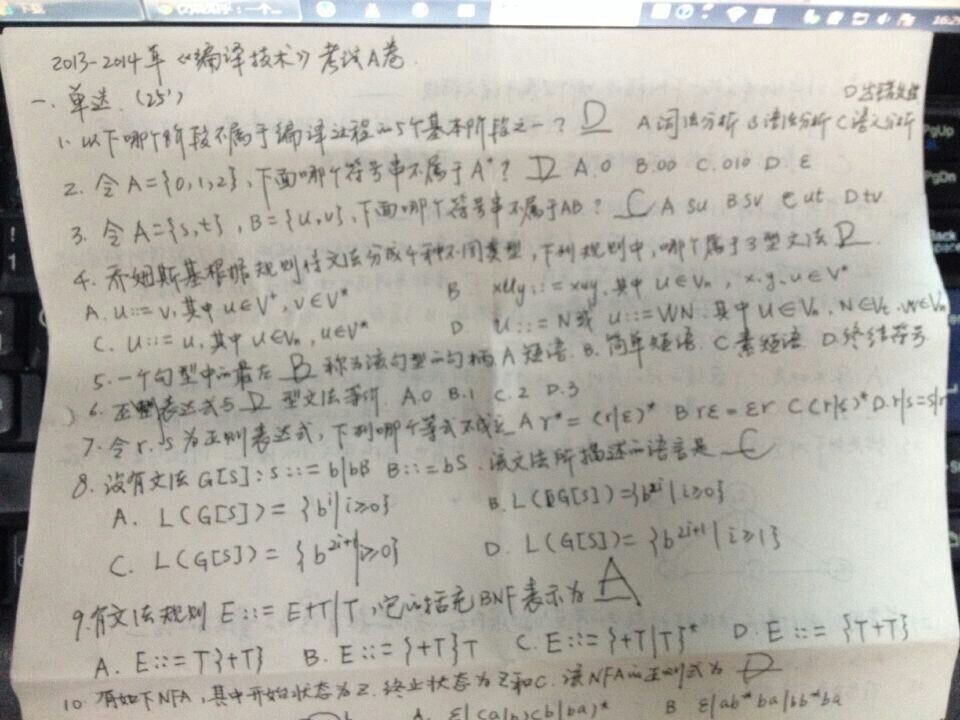 下载
知乎:一个...
16:2
PgUp
PgDn
2013-2014年《编译技术》考试A卷
一. 单选. (25')
1. 以下哪个阶段不属于编译过程的5个基本阶段之一? D A 词法分析 B 语法分析 C 语义分析 D 出错处理
2. 令A={0,1,2}, 下面哪个符号串不属于A⁺? D A.0 B.00 C.010 D.ε
3. 令A={s,t}, B={u,v}, 下面哪个符号串不属于AB? C A su B sv C ut D tv
4. 乔姆斯基根据规则将文法分成4种不同类型, 下列规则中, 哪个属于3型文法 D
A. u::=v, 其中u∈V⁺, v∈V* B xUy::=xuy, 其中 U∈Vn, x,y,u∈V*
C. U::=u, 其中U∈Vn, u∈V* D U::=N或U::=WN, 其中U∈Vn, N∈Vt, W∈Vn
5. 一个句型中的最左 B 称为该句型的句柄 A 短语. B. 简单短语. C 素短语. D. 终结符号
6. 正则表达式与 D 型文法等价. A.0 B.1 C.2 D.3
7. 令r.s为正则表达式, 下列哪个等式不成立 A r*=(r|ε)* B rε=εr C (r|s)* D. r|s=s|r
8. 设有文法G[S]: S::=b|bB B::=bS. 该文法所描述的语言是 C
A. L(G[S])={bⁱ|i≥0} B. L(G[S])={b²ⁱ|i≥0}
C. L(G[S])={b²ⁱ⁺¹|i≥0} D. L(G[S])={b²ⁱ⁺¹|i≥1}
9. 有文法规则 E::=E+T|T, 它的括充BNF表示为 A
A. E::=T{+T} B. E::={+T}T C. E::={+T|T}* D. E::={T+T}
10. 有如下NFA, 其中开始状态为Z. 终止状态为Z和C. 该NFA的正则式为 D
B ε|ab*ba|bb*ba